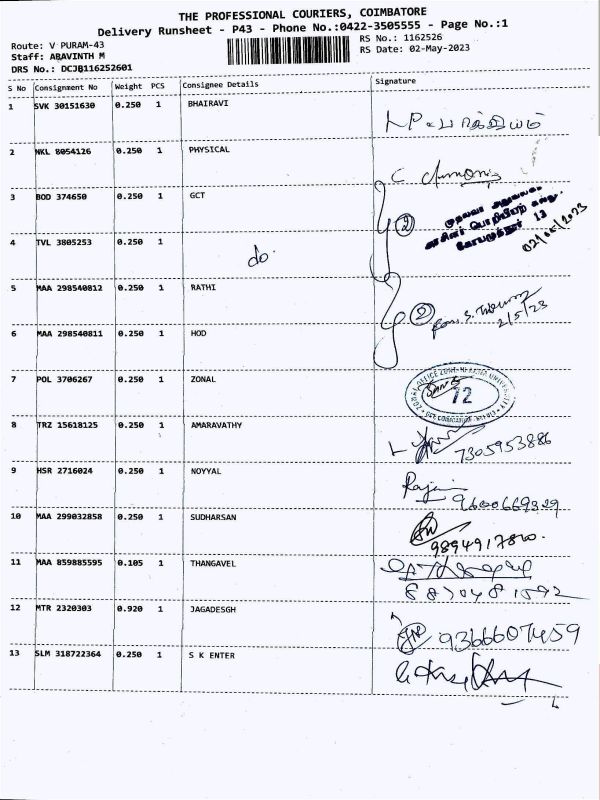 THE PROFESSIONAL COURIERS, COIMBATORE
Delivery Runsheet - P43 - Phone No.:0422-3505555 - Page No.:1
Route: V PURAM-43
RS No.: 1162526
Staff: ABAVINTH M
RS Date: 02-May-2023
DRS No.: DCJB116252601
S No Consignment No Weight PCS Consignee Details Signature
1 SVK 30151630 0.250 1 BHAIRAVI
2 NKL 8054126 0.250 1 PHYSICAL
3 BOD 374650 0.250 1 GCT
②
கோயமுத்தூர் 13
02/05/2023
4 TVL 3805253 0.250 1 do
5 MAA 298540812 0.250 1 RATHI
②
2/5/23
6 MAA 298540811 0.250 1 HOD
7 POL 3706267 0.250 1 ZONAL
12
8 TRZ 15618125 0.250 1 AMARAVATHY
7305953886
9 HSR 2716024 0.250 1 NOYYAL
9600669329
10 MAA 299032858 0.250 1 SUDHARSAN
9894917800.
11 MAA 859885595 0.105 1 THANGAVEL
8870481592
12 MTR 2320303 0.920 1 JAGADESGH
9366607459
13 SLM 318722364 0.250 1 S K ENTER